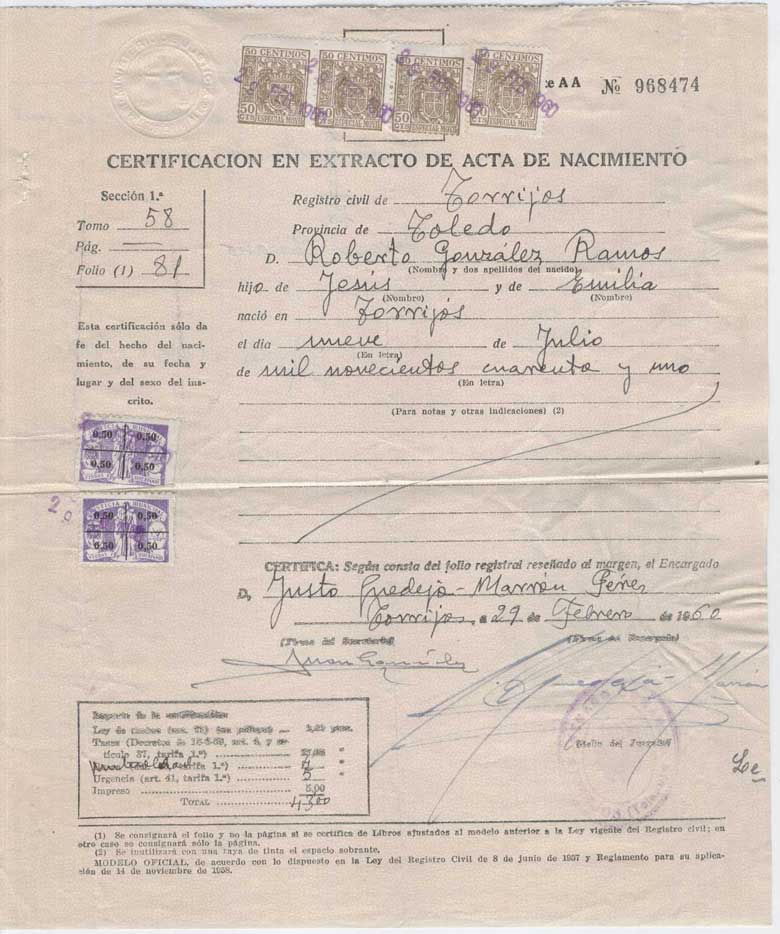 50 CENTIMOS 50 CENTIMOS 50 CENTIMOS 50 CENTIMOS
50 CTS ESPECIAL MOVIL
29 FEB 1960
AA Nº 968474
CERTIFICACION EN EXTRACTO DE ACTA DE NACIMIENTO
Sección 1.ª
Tomo 58
Pág. —
Folio (1) 81
Registro civil de Torrijos
Provincia de Toledo
D. Roberto González Ramos
(Nombre y dos apellidos del nacido)
hijo de Jesús y de Emilia
(Nombre) (Nombre)
nació en Torrijos
el día nueve de Julio
(En letra)
de mil novecientos cuarenta y uno
(En letra)
(Para notas y otras indicaciones) (2)
Esta certificación sólo da
fe del hecho del naci-
miento, de su fecha y
lugar y del sexo del ins-
crito.
JUSTICIA MUNICIPAL
0,50 0,50
0,50 0,50
JUSTICIA MUNICIPAL
0,50 0,50
0,50 0,50
CERTIFICA: Según consta del folio registral reseñado al margen, el Encargado
D. Justo Guedeja-Marron Pérez
Torrijos, a 29 de Febrero de 1960
(Firma del Secretario) (Firma del Encargado)
(Sello del Juzgado)
Importe de la certificación:
Tasas (Decreto de
tículo 37, tarifa 1.ª)
tarifa 1.ª)
Urgencia (art. 41, tarifa 1.ª) 5 "
Impreso 5,00
TOTAL 43,00
(1) Se consignará el folio y no la página si se certifica de Libros ajustados al modelo anterior a la Ley vigente del Registro civil; en
otro caso se consignará sólo la página.
(2) Se inutilizará con una raya de tinta el espacio sobrante.
MODELO OFICIAL, de acuerdo con lo dispuesto en la Ley del Registro Civil de 8 de junio de 1957 y Reglamento para su aplica-
ción de 14 de noviembre de 1958.